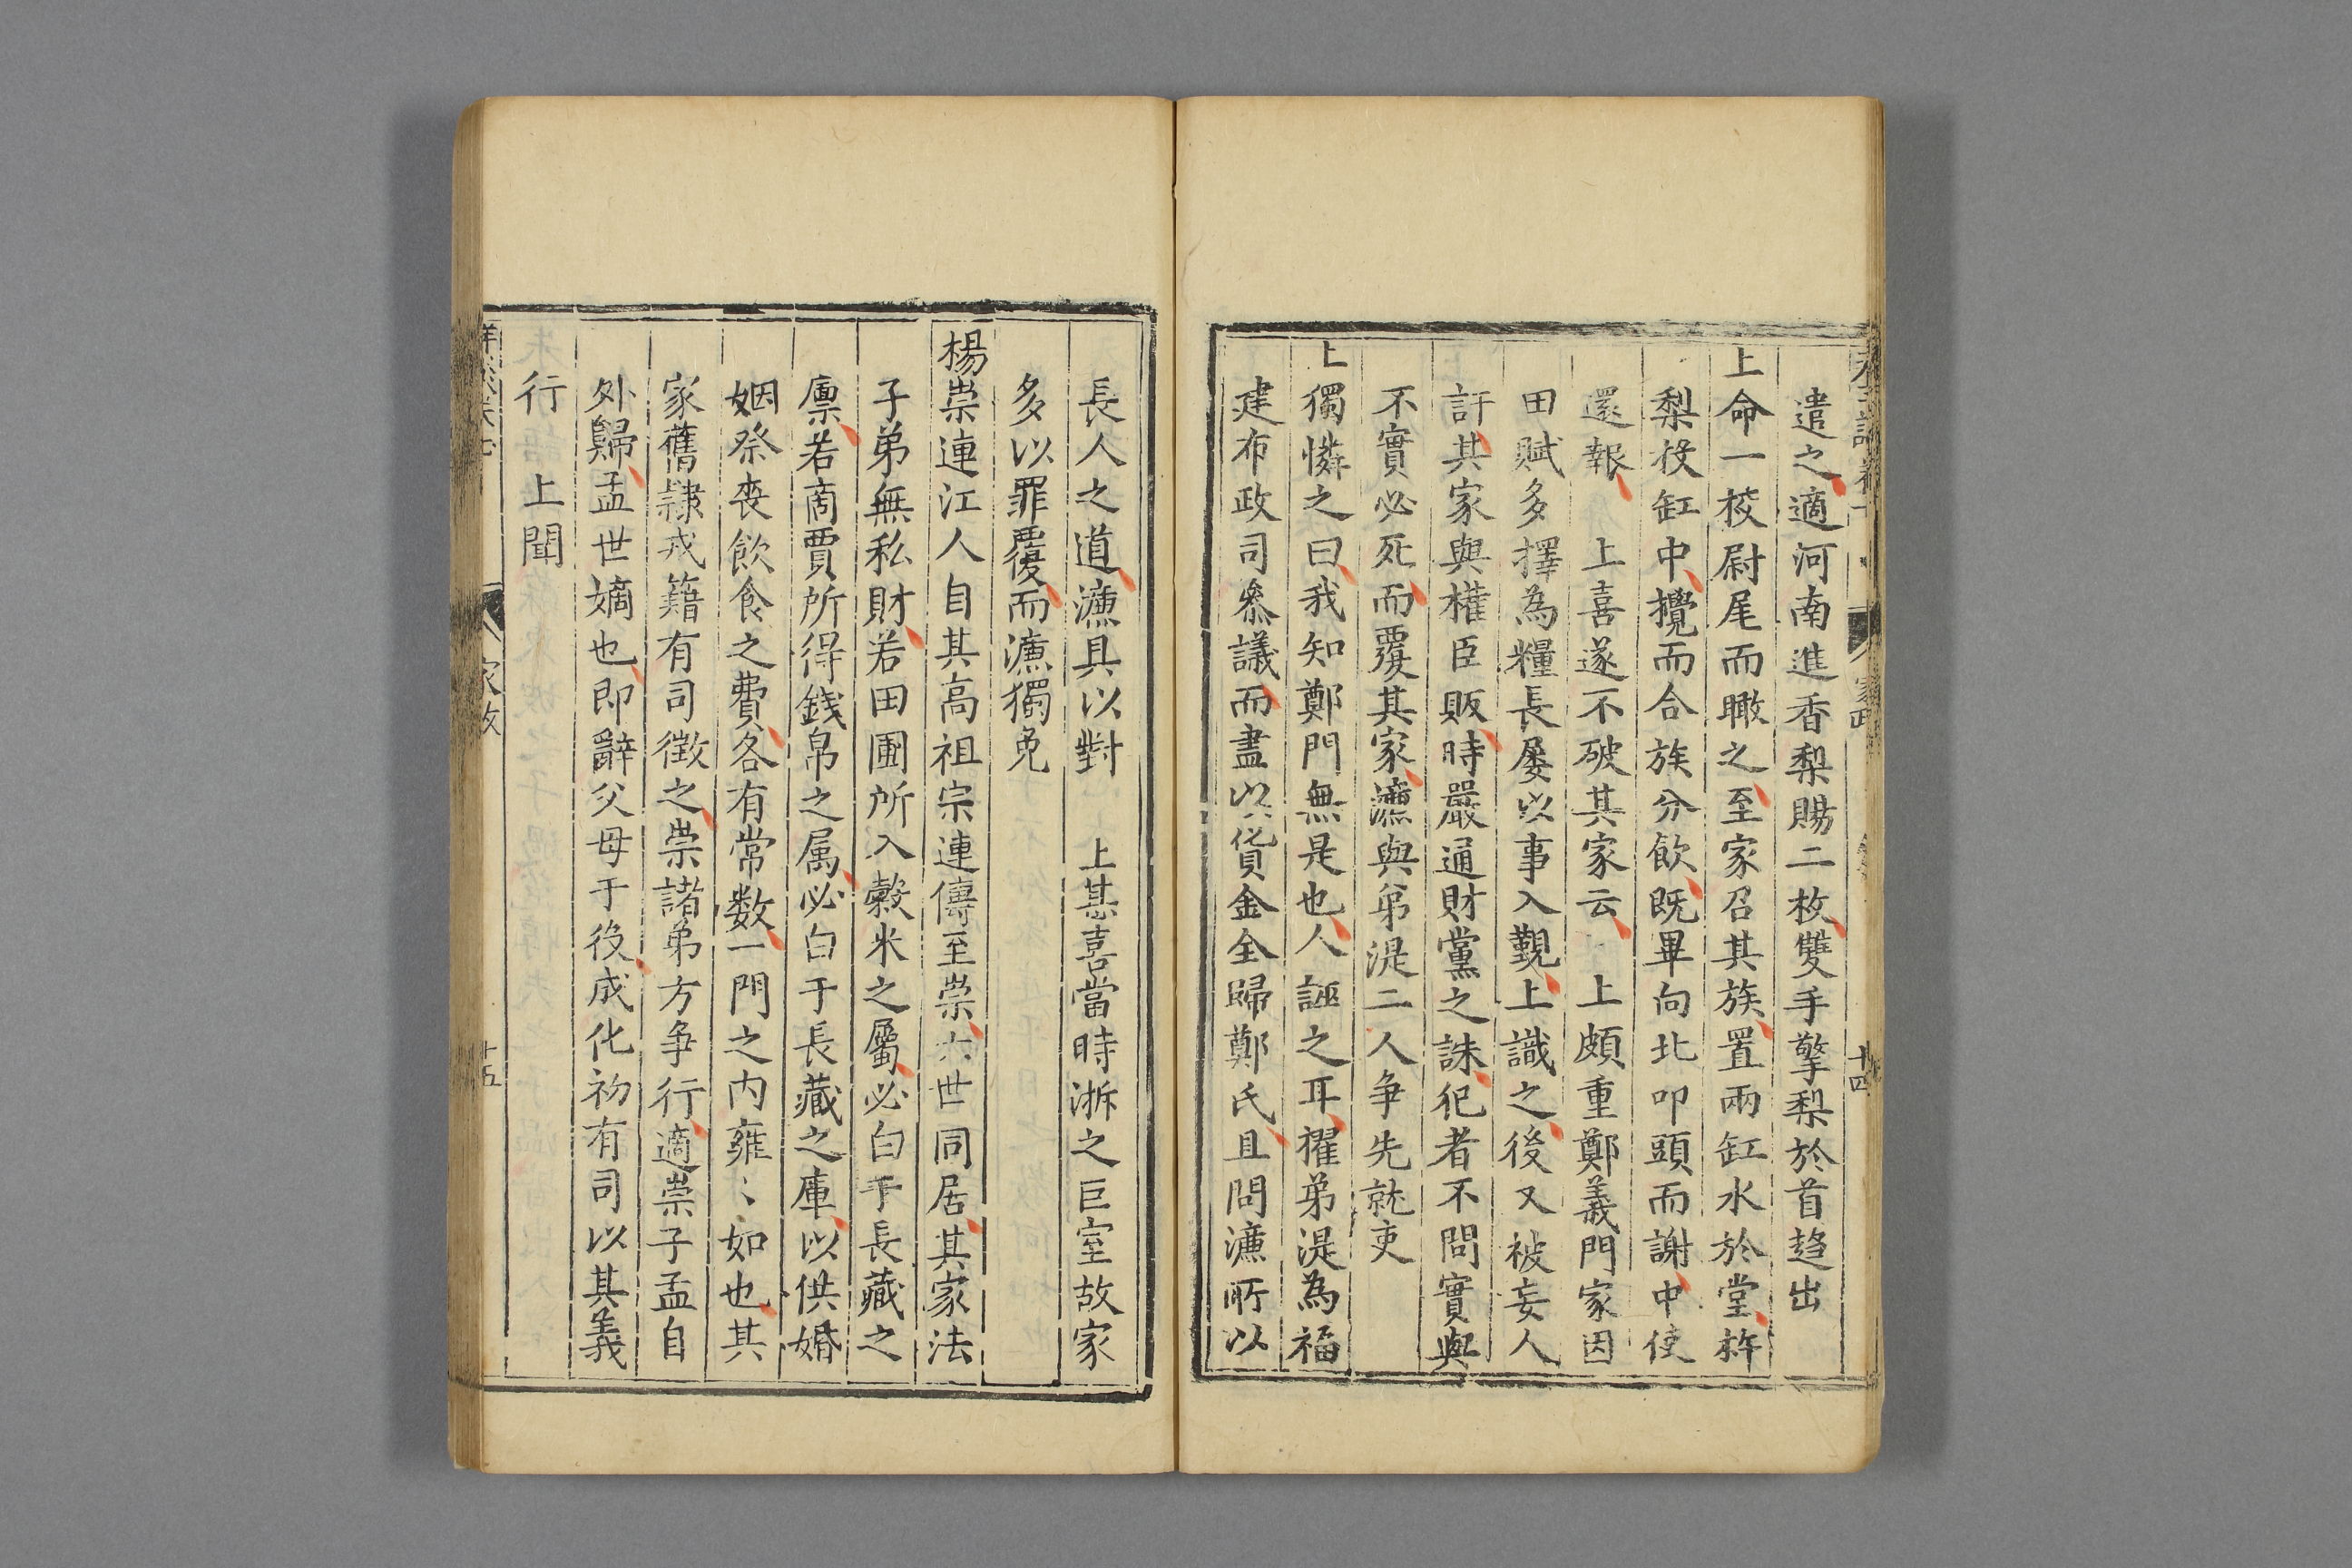 遣之適河南進香梨賜二枚雙手擎梨於首趍出
上命一校尉尾而瞰之至家召其族置兩缸水於堂杵
梨投缸中攪而合族分飲既畢向北叩頭而謝中使
還報　上喜遂不破其家云　上頗重鄭義門家因
田賦多擇為糧長屢以事入觐上識之後又被妄人
訐其家與權臣販時嚴通財黨之誅犯者不問實與
不實必死而覆其家濂與弟湜二人争先就吏
上獨憐之曰我知鄭門無是也人誣之耳擢弟湜為福
建布政司叅議而盡以貨金全歸鄭氏且問濂所以
長人之道濂具以對　上甚喜當時浙之巨室故家
多以罪覆而濂獨免
楊崇連江人自其高祖宗連傳至崇六世同居其家法
子弟無私財若田圃所入穀米之屬必白于長藏之
廪若商賈所得錢帛之属必白于長藏之庫以供婚
姻祭喪飲食之費各有常数一門之内雍〻如也其
家舊隷戎籍有司徴之崇諸弟方争行適崇子孟自
外歸孟世嫡也即辭父母于役成化初有司以其義
行　上聞
家政
十四
十五